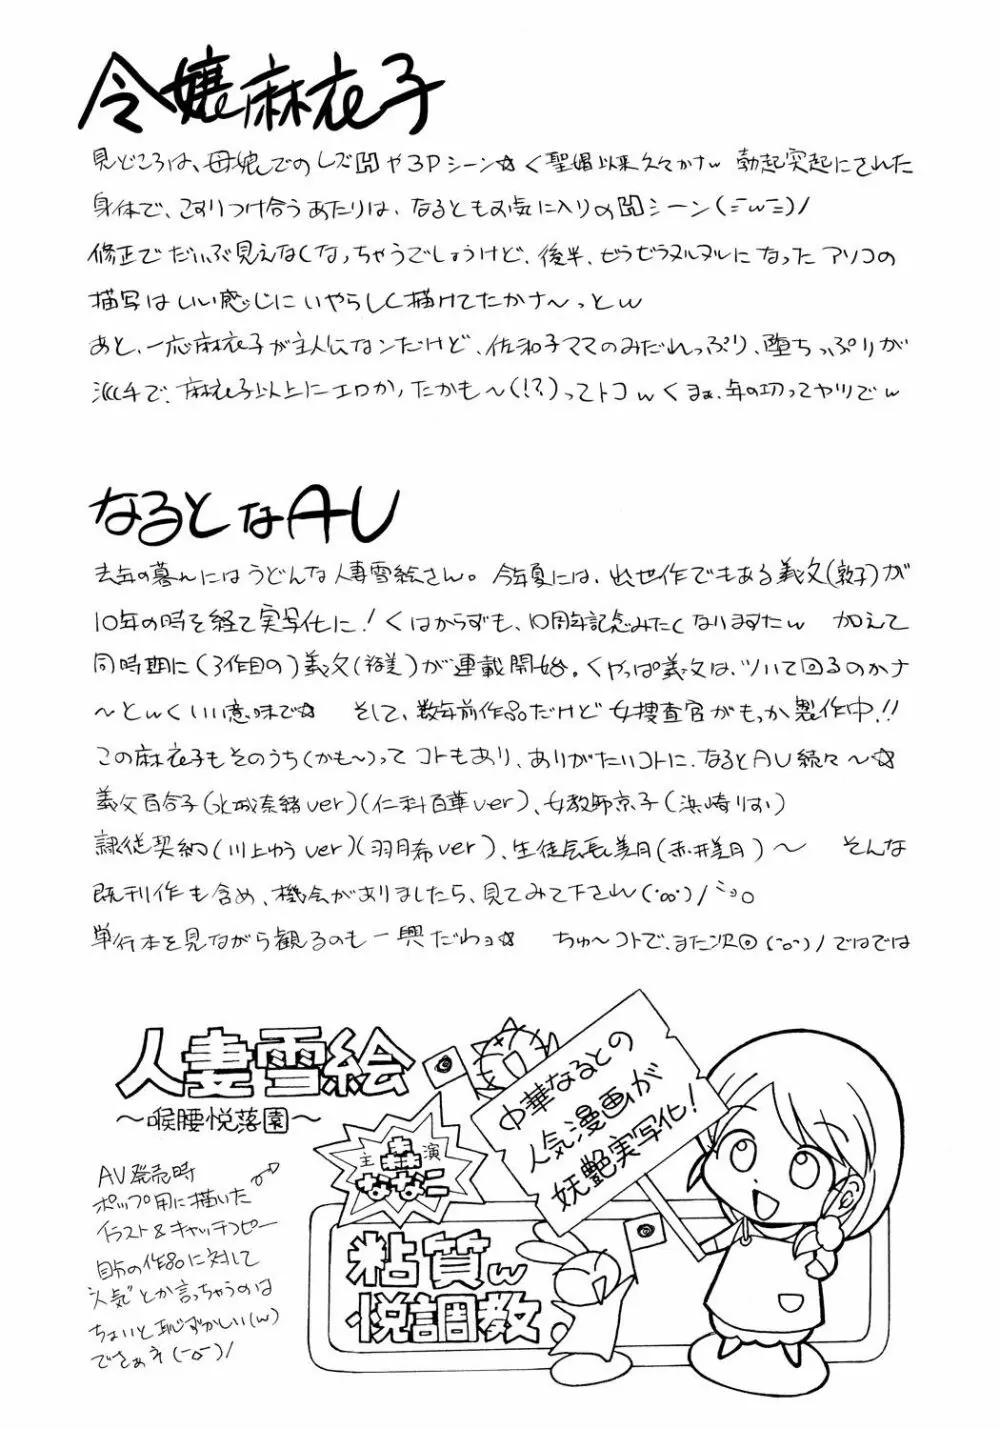 令嬢麻衣子
見どころは、母娘でのレズ関や3Pシーン☆く聖娼以来久々かナw 勃起突起にされた
身体で、こすりつけ合うあたりは、なるともお気に入りの関シーン(=w=)ノ
修正でだいぶ見えなくなっちゃうでしょうけど、後半、ビラビラヌルヌルになったアソコの
描写はいい感じにいやらしく描けてたかナ〜っとw
あと、一応麻衣子が主人公なンだけど、佐和子ママのみだれっぷり、堕ちっぷりが
派手で、麻衣子以上にエロかったかも〜(!?)ってトコwくまぁ、年の功ってヤツでw
なるとなAV
去年の暮れにはうどんな人妻雪絵さん。今年夏には、出世作でもある義父(敦子)が
10年の時を経て実写化に!くはからずも、10周年記念みたくなりますたw 加えて
同時期に(3作目の)義父(裕美)が連載開始。くやっぱ義父は、ツいて回るのかナ
〜とwくいい意味で☆ そして、数年前作品だけど女捜査官がもっか製作中!!
この麻衣子もそのうち(かも〜)ってコトもあり、ありがたいコトに、なるとAV続々〜☆
義父百合子(水城奈緒ver)(仁科百華ver)、女教師京子(浜崎りお)
隷従契約(川上ゆうver)(羽月希ver)、生徒会長美月(赤井美月)〜 そんな
既刊作も含め、機会がありましたら、見てみて下さいw(・∞・)ノシ。
単行本を見ながら観るのも一興だわョ☆ ちゅ〜コトで、また次回(・o・)ノではでは
人妻雪絵
〜喉腰悦落園〜
中華なるとの
人気漫画が
妖艶実写化!
主演
森ななこ
AV発売時
ポップ用に描いた
イラスト&キャッチコピー
自分の作品に対して
"人気"とか言っちゃうのは
ちょいと恥ずかしい(w)
でさぁネ(-o-)ノ
粘質w
悦調教